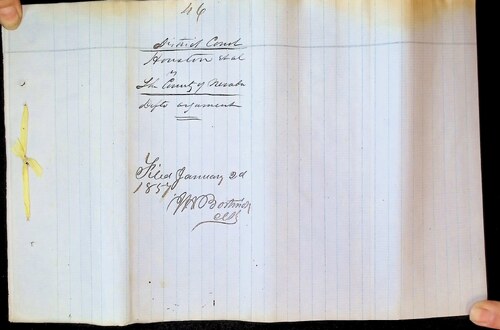 46
District Court
Houston et al
vs
The County of Nevada
Defts argument
Filed January 2d
1857
Clk